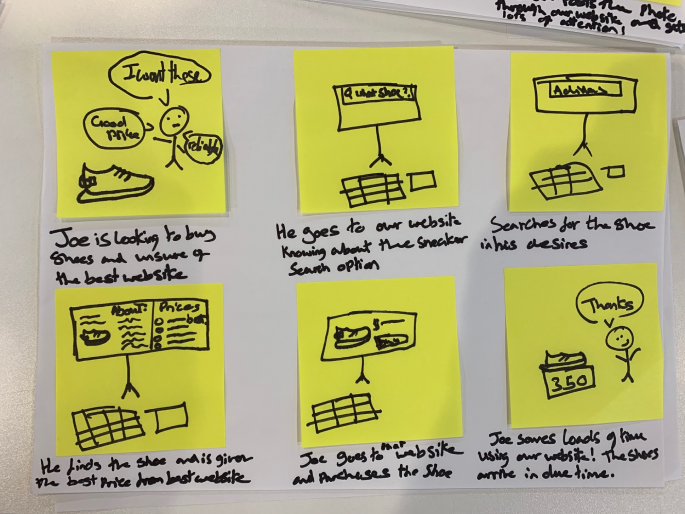 through our website and gets
lots of attention!
I want those
Good
Price
reliable
Joe is looking to buy
shoes and unsure of
the best website
What Shoe?
He goes to our website
knowing about the sneaker
search option
Adidas
Searches for the shoe
in his desires
About:
Prices
best
He finds the shoe and is given
the best price from best website
$
Joe goes to that website
and purchases the shoe
Thanks
350
Joe saves loads of time
using our website! The shoes
arrive in due time.